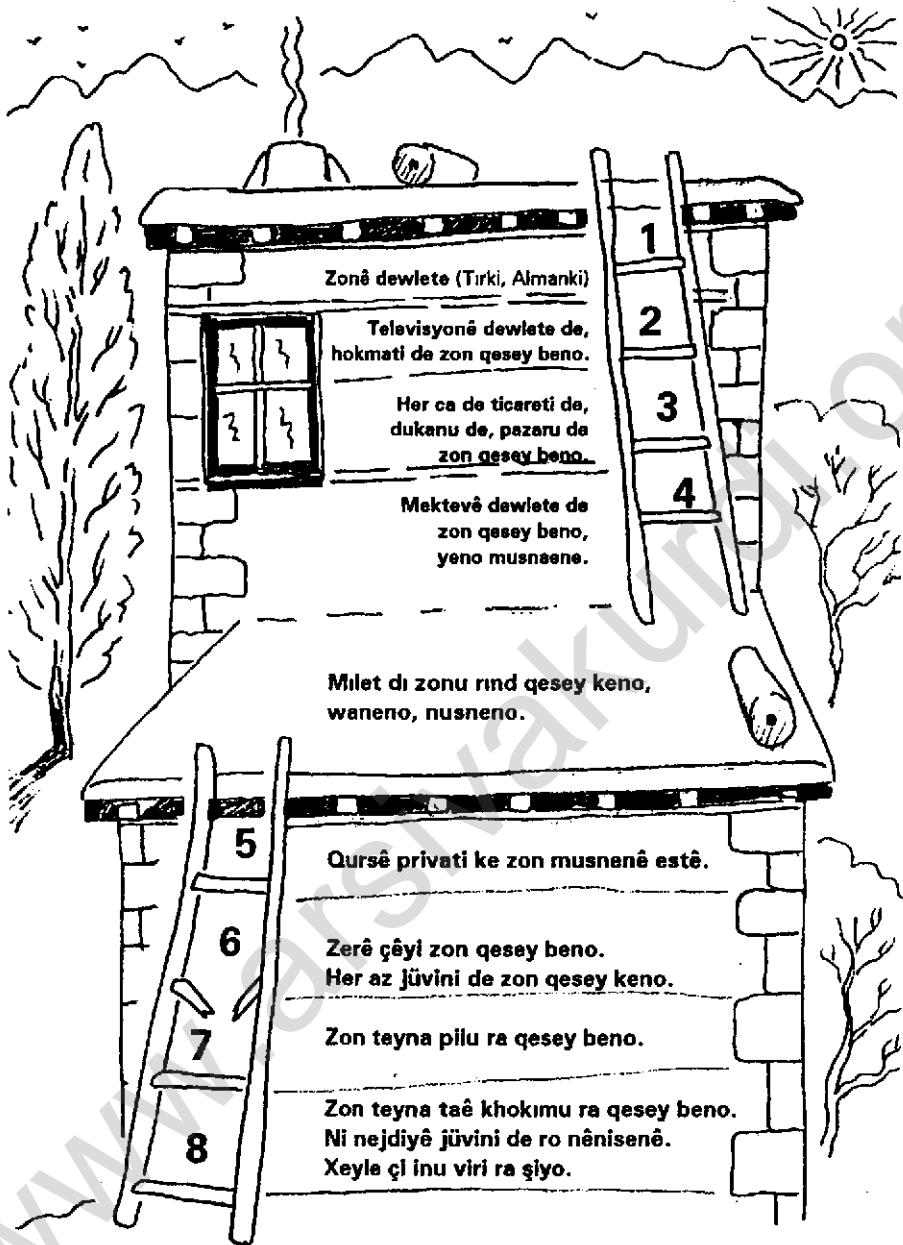 1
Zonê dewlete (Tırki, Almanki)
2
Televisyonê dewlete de,
hokmati de zon qesey beno.
3
Her ca de ticareti de,
dukanu de, pazaru de
zon qesey beno.
4
Mektevê dewlete de
zon qesey beno,
yeno musnaene.
Mılet dı zonu rınd qesey keno,
waneno, nusneno.
5
Qursê privati ke zon musnenê estê.
6
Zerê çêyi zon qesey beno.
Her az jüvini de zon qesey keno.
7
Zon teyna pilu ra qesey beno.
8
Zon teyna taê khokımu ra qesey beno.
Ni nejdiyê jüvini de ro nênisenê.
Xeyle çi inu viri ra şiyo.
www.arsivakurdi.org